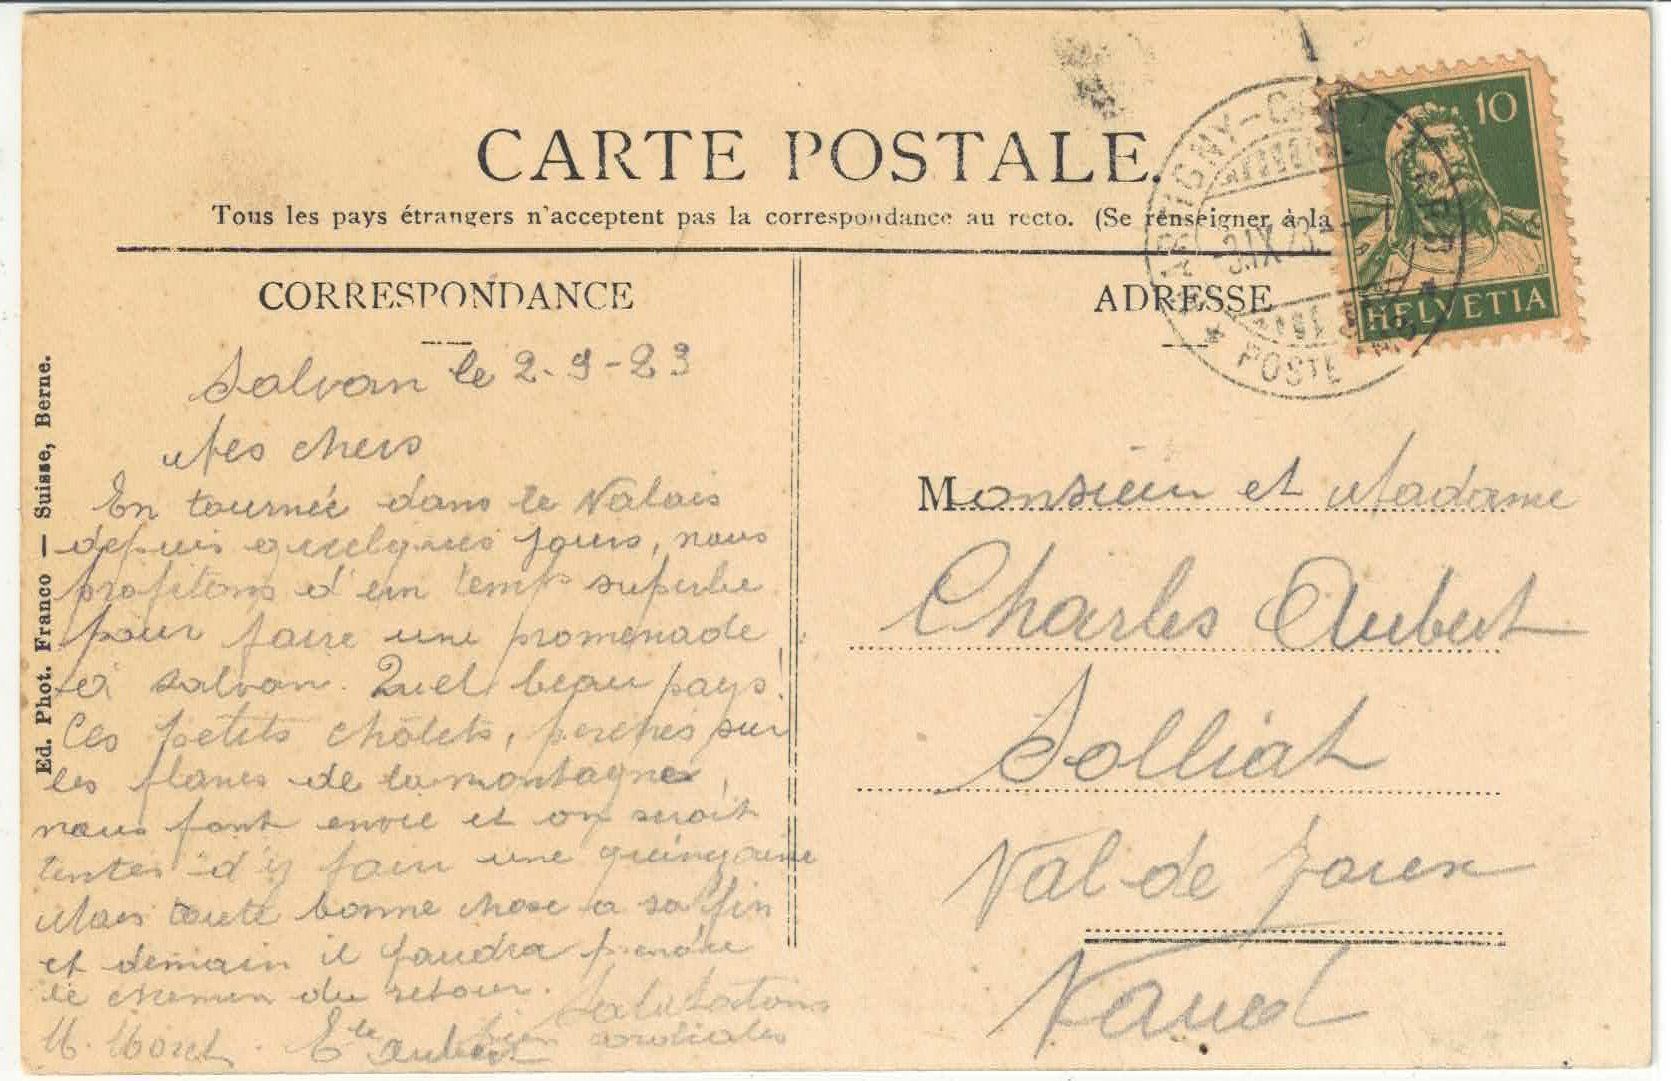 CARTE POSTALE.
Tous les pays étrangers n'acceptent pas la correspondance au recto. (Se renseigner à la
CORRESPONDANCE
Salvan le 2-9-23
Mes chers
En tournée dans le Valais
depuis quelques jours, nous
profitons d'un temps superbe
pour faire une promenade
à Salvan. Quel beau pays!
Ces petits châlets, perchés sur
les flancs de la montagne,
nous font envie et on serait
tentés d'y faire une quinzaine
Mais toute bonne chose a sa fin
et demain il faudra prendre
le chemin du retour.
Salutations
bien cordiales
M. Moret. Ele Aubert
ADRESSE
Monsieur et Madame
Charles Aubert
Solliat
Val-de Joux
Vaud
10
HELVETIA
MARTIGNY-
-3.IX.23.
POSTE
Ed. Phot. Franco — Suisse, Berne.